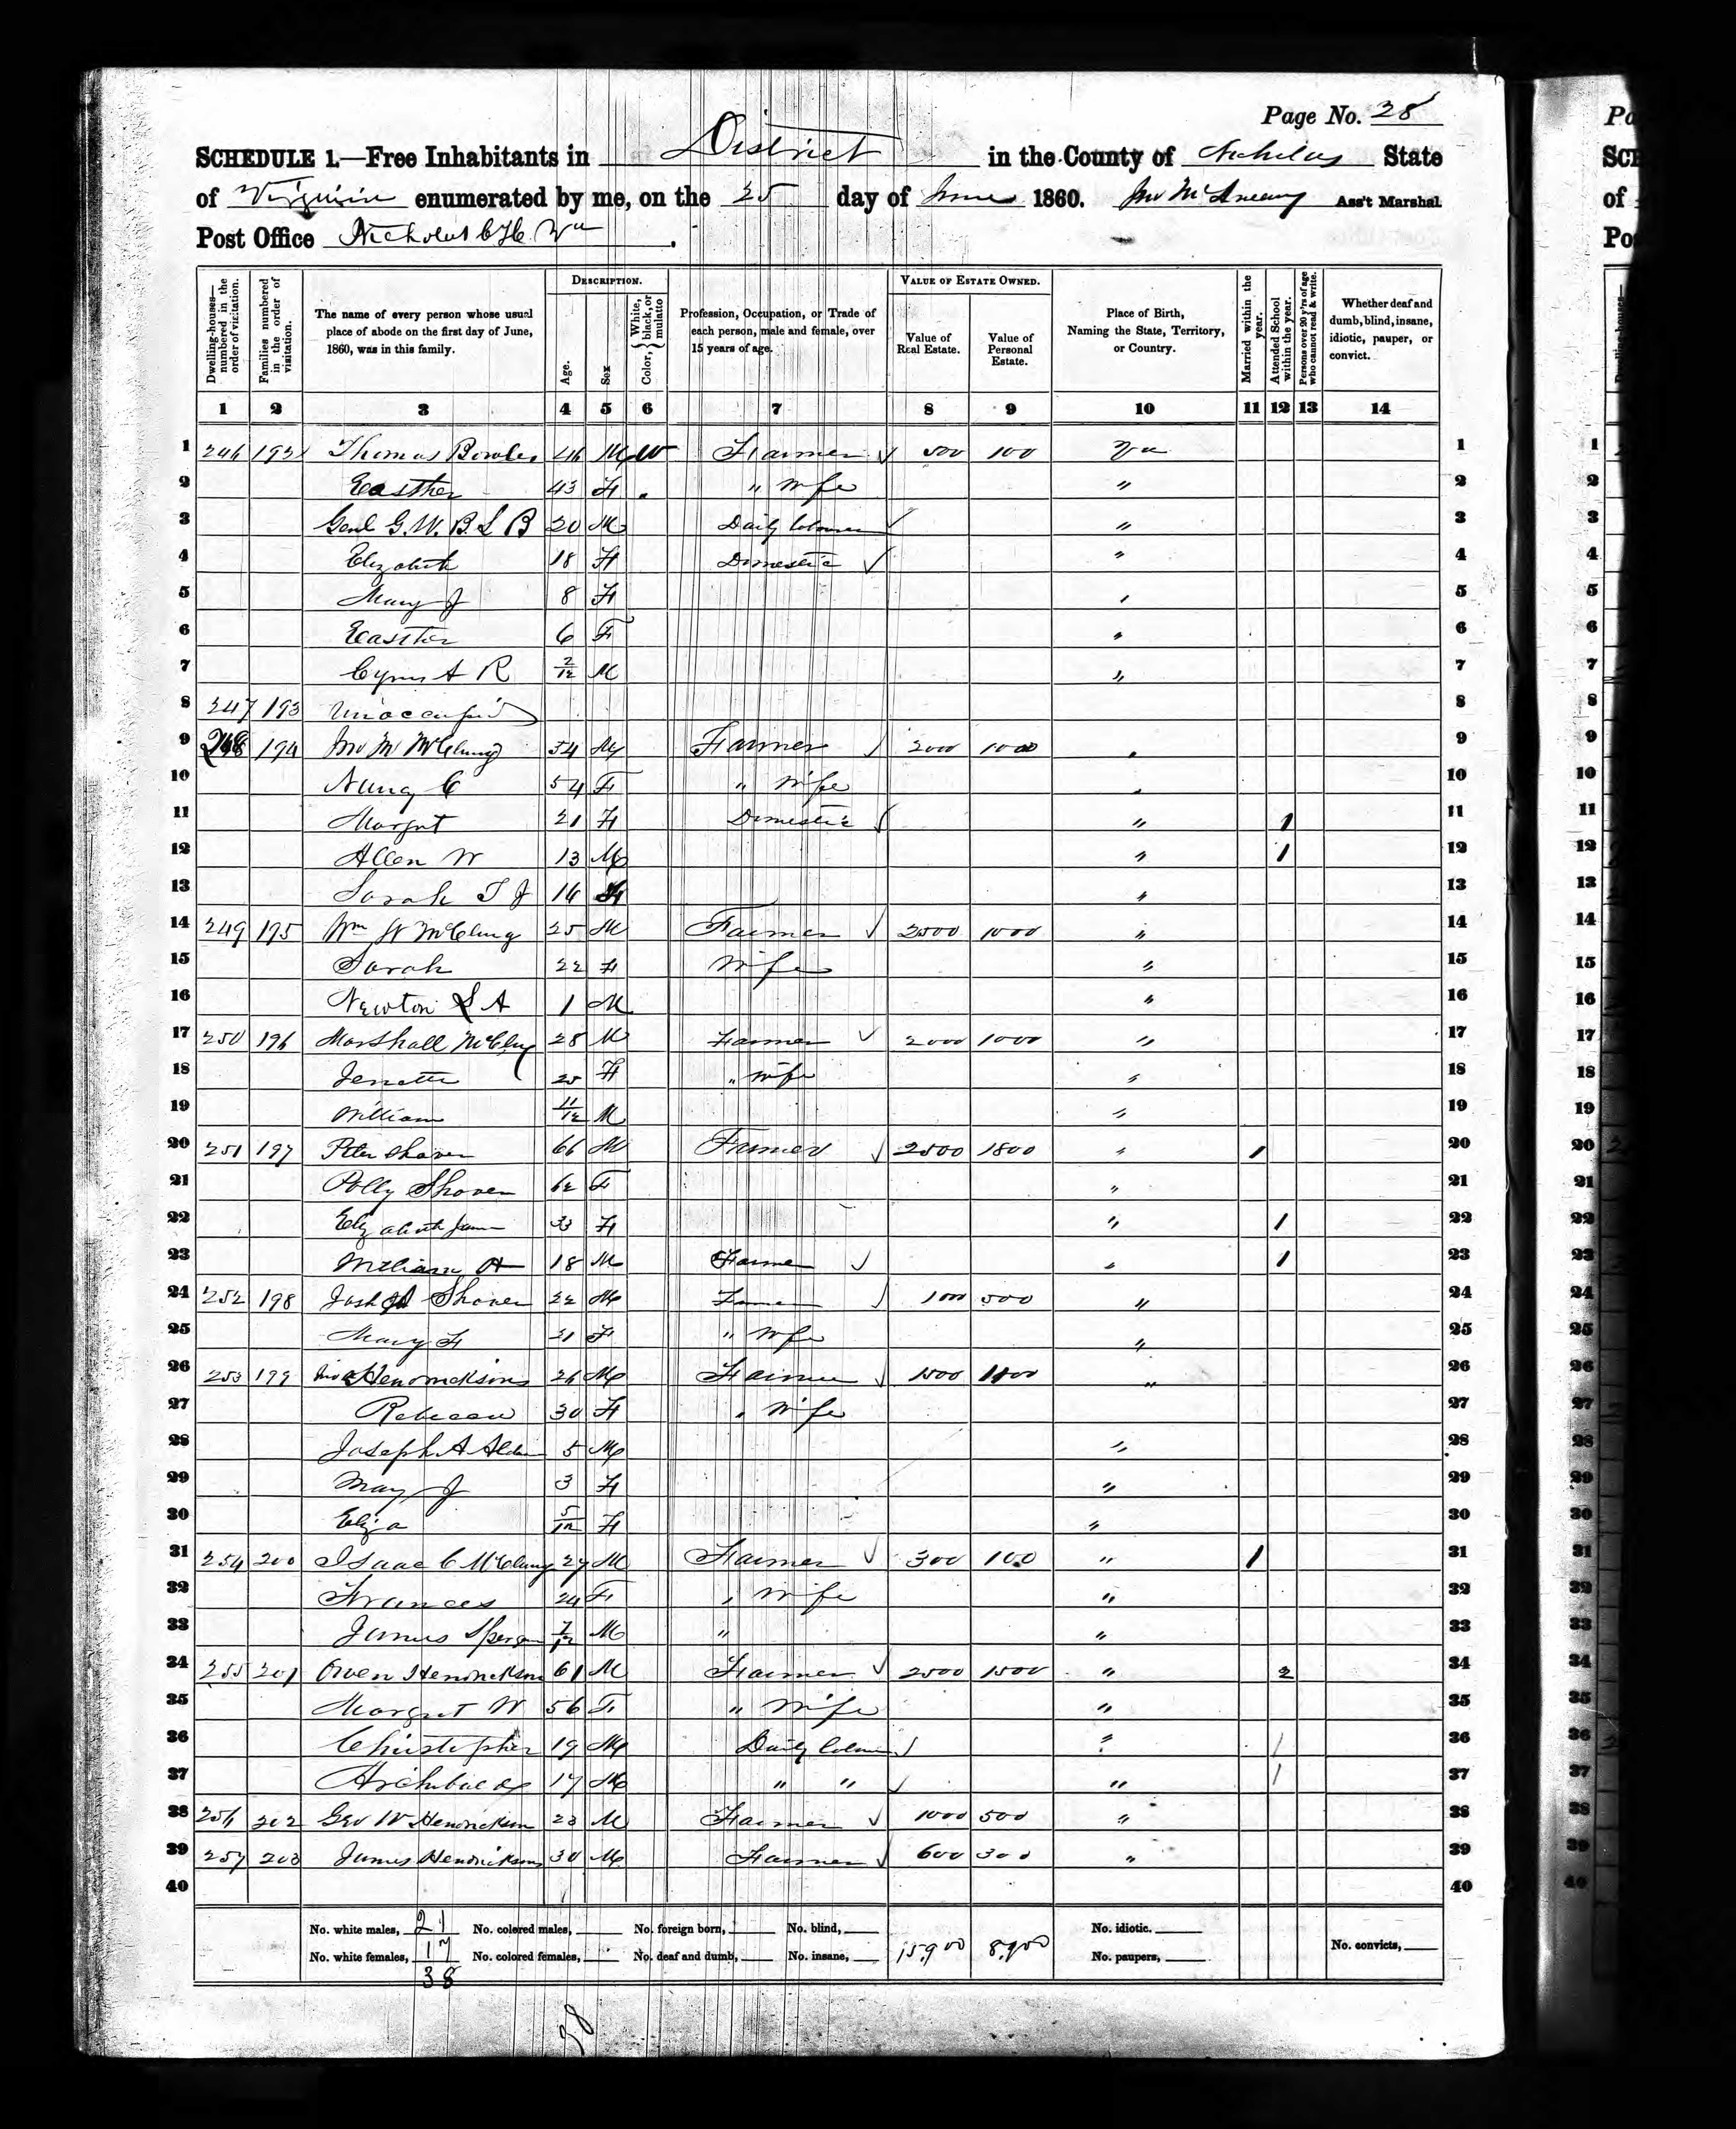 Page No. 28
SCHEDULE 1.—Free Inhabitants in District in the County of Nicholas State
of Virginia enumerated by me, on the 25 day of June 1860. Jno Ass't Marshal.
Post Office Nicholas C H Va.
Dwelling-houses—numbered in the order of visitation.
Families numbered in the order of visitation.
The name of every person whose usual place of abode on the first day of June, 1860, was in this family.
DESCRIPTION.
Age.
Sex
Color, White, black, or mulatto
Profession, Occupation, or Trade of each person, male and female, over 15 years of age.
VALUE OF ESTATE OWNED.
Value of Real Estate.
Value of Personal Estate.
Place of Birth, Naming the State, Territory, or Country.
Married within the year.
Attended School within the year.
Persons over 20 y'rs of age who cannot read & write.
Whether deaf and dumb, blind, insane, idiotic, pauper, or convict.
1 2 3 4 5 6 7 8 9 10 11 12 13 14
1 246 192 Thomas Bowles 46 M W Farmer 500 100 Va 1
2 Easther 43 F " Wife " 2
3 Genl G. W. B. L B 20 M Daily " 3
4 Elizabeth 18 F Domestic " 4
5 Mary J 8 F " 5
6 Easther 6 F " 6
7 Cyrus A R 2/12 M " 7
8 247 193 Unoccupied 8
9 248 194 Jno M McClung 54 M Farmer 2000 1000 " 9
10 Nancy C 54 F " Wife " 10
11 Margret 21 F Domestic " 1 11
12 Allen W 13 M " 1 12
13 Sarah T J 14 F " 13
14 249 195 Wm H McClung 25 M Farmer 2500 1000 " 14
15 Sarah 22 F Wife " 15
16 Newton S A 1 M " 16
17 250 196 Marshall McClung 28 M Farmer 2000 1000 " 17
18 Jenette 25 F " Wife " 18
19 William 11/12 M " 19
20 251 197 Peter Shaver 66 M Farmer 2500 1800 " 1 20
21 Polly Shaver 62 F " 21
22 Elizabeth Jane 33 F " 1 22
23 William H 18 M Farmer " 1 23
24 252 198 Shaver 22 M Farmer 100 500 " 24
25 Mary F 21 F " Wife " 25
26 253 199 Hendricksons 26 M Farmer 1500 1100 " 26
27 Rebecca 30 F " Wife 27
28 Joseph A 5 M " 28
29 Mary J 3 F " 29
30 Eliza 5/12 F " 30
31 254 200 Isaac C McClung 27 M Farmer 300 100 " 1 31
32 Frances 24 F " Wife " 32
33 James 7/12 M " " 33
34 255 201 Owen Hendrickson 61 M Farmer 2500 1500 " 2 34
35 Margret W 56 F " Wife " 35
36 Christopher 19 M Daily " 1 36
37 Archibald 17 M " " " 1 37
38 256 202 Geo W Hendrickson 23 M Farmer 1000 500 " 38
39 257 203 James Hendricksons 30 M Farmer 600 300 " 39
40 40
No. white males, 21 No. colored males, No. foreign born, No. blind, No. idiotic.
No. white females, 17 No. colored females, No. deaf and dumb, No. insane, 15,900 8,900 No. paupers, No. convicts,
38